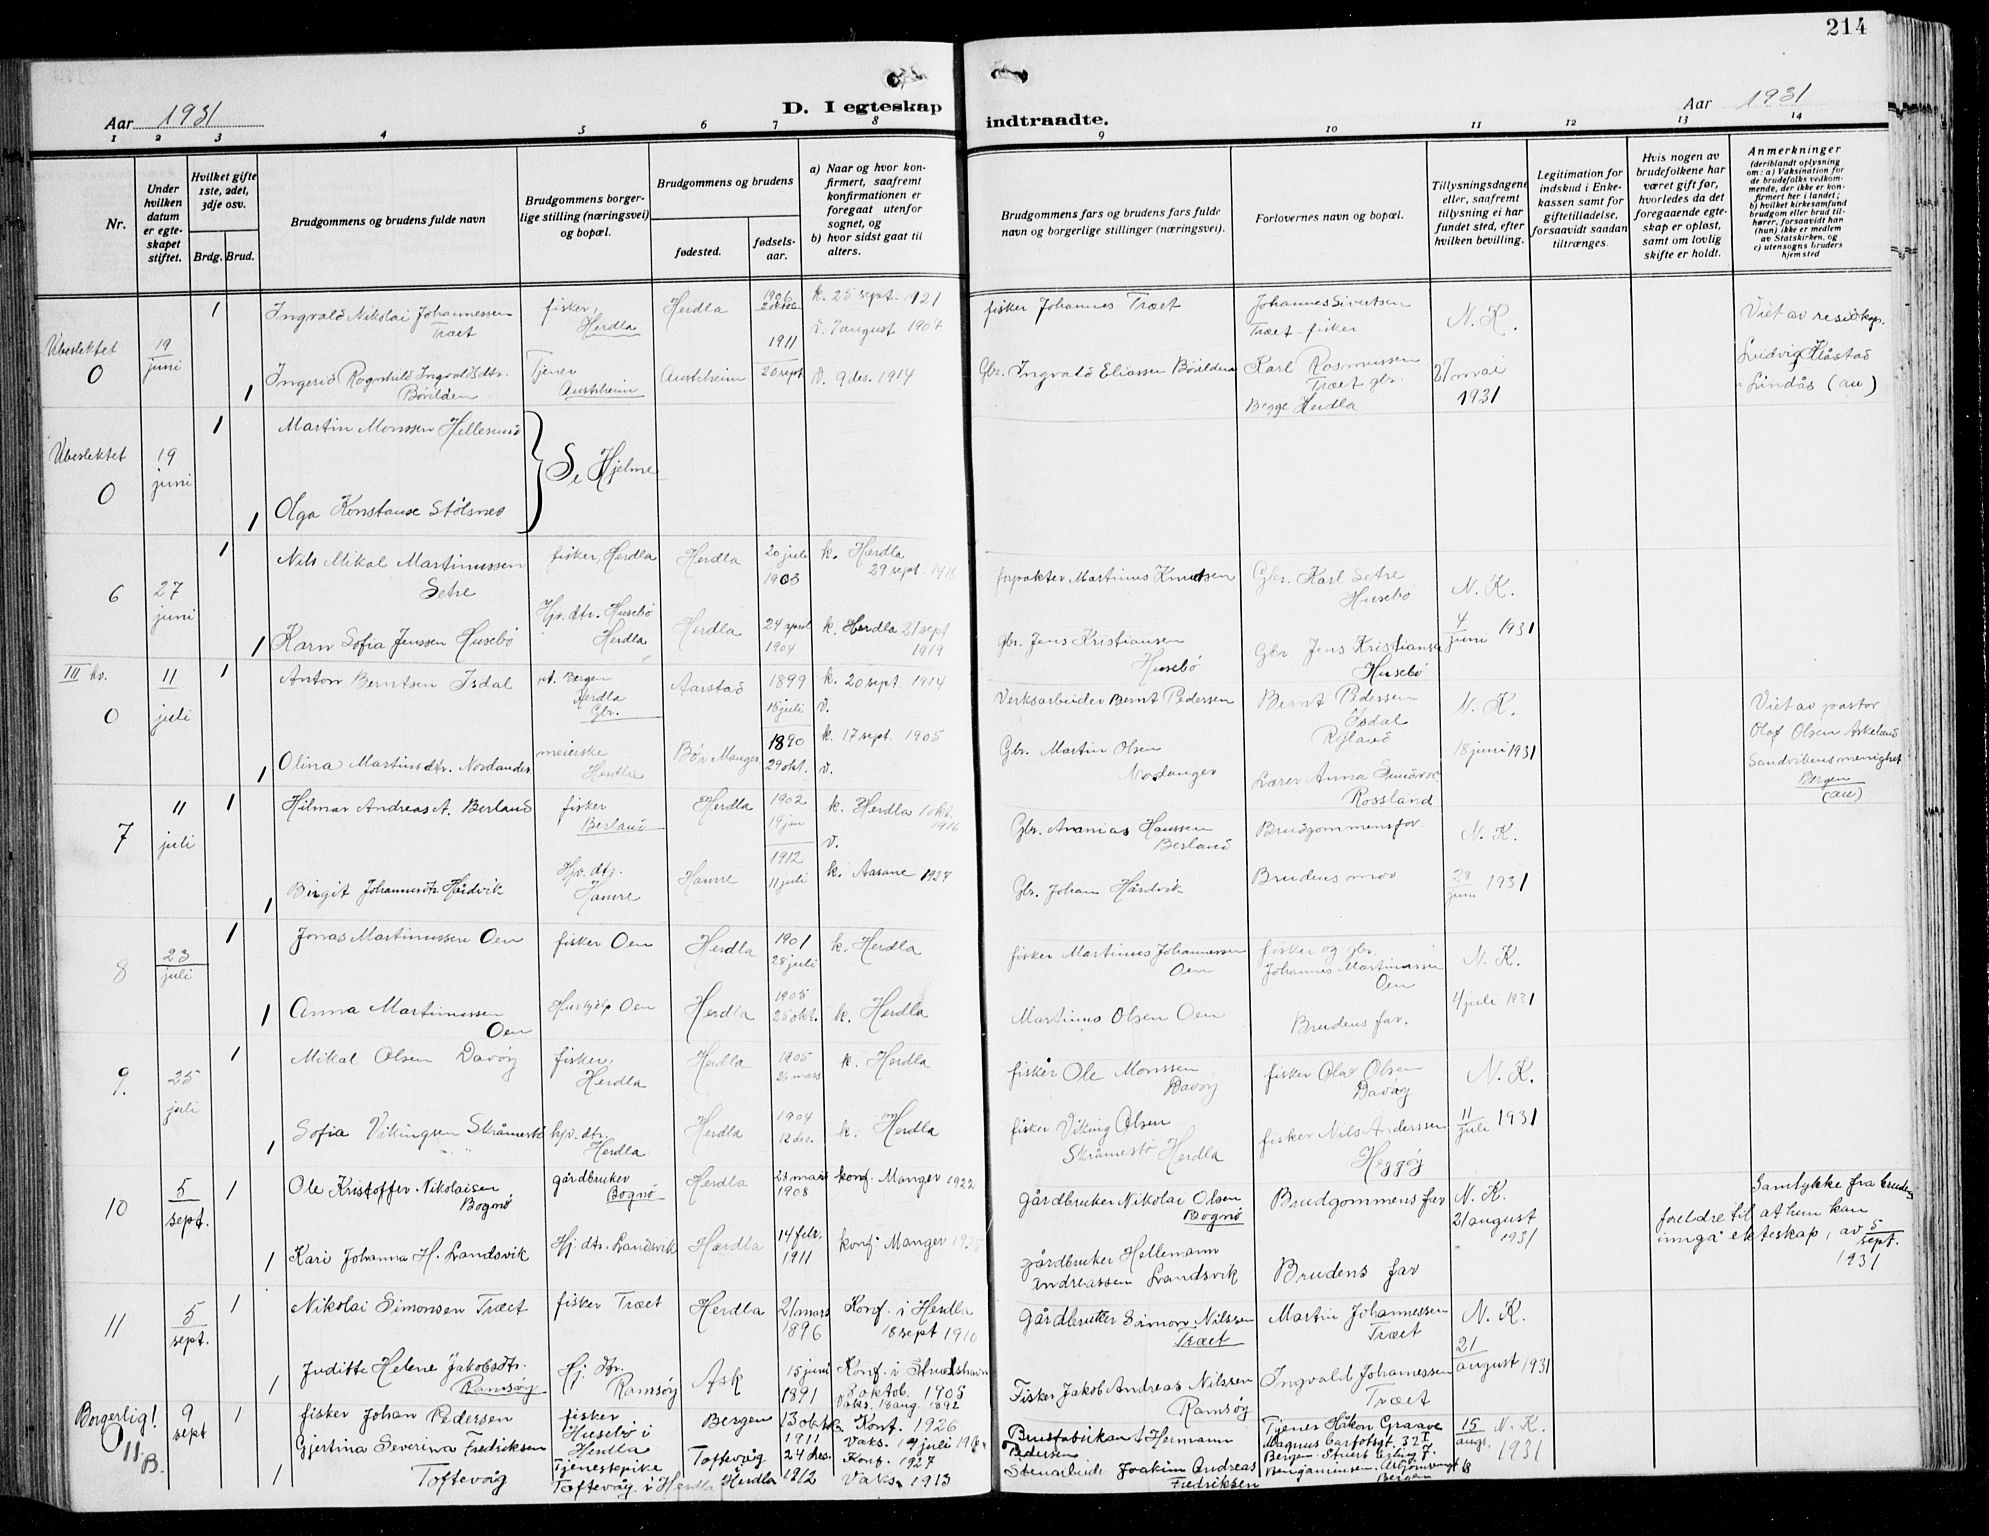 214
Aar 1931
D. I egteskap
indtraadte.
Aar 1931
1 2 3 4 5 6 7 8 9 10 11 12 13 14
Nr.
Under hvilken datum er egteskapet stiftet.
Hvilket gifte 1ste, 2det, 3dje osv.
Brdg. Brud.
Brudgommens og brudens fulde navn
Brudgommens borgerlige stilling (næringsvei) og bopæl.
Brudgommens og brudens
fødested.
fødselsaar.
a) Naar og hvor konfirmert, saafremt konfirmationen er foregaat utenfor sognet, og
b) hvor sidst gaat til alters.
Brudgommens fars og brudens fars fulde navn og borgerlige stillinger (næringsvei).
Forlovernes navn og bopæl.
Tillysningsdagene eller, saafremt tillysning ei har fundet sted, efter hvilken bevilling.
Legitimation for indskud i Enkekassen samt for giftetilladelse, forsaavidt saadan tiltrænges.
Hvis nogen av brudefolkene har været gift før, hvorledes da det foregaaende egteskap er opløst, samt om lovlig skifte er holdt.
Anmerkninger
(deriblandt oplysning om: a) Vaksination for de brudefolks vedkommende, der ikke er konfirmert her i landet; b) hvilket kirkesamfund brudgom eller brud tilhører, forsaavidt han (hun) ikke er medlem av Statskirken, og c) utensogns bruders hjemsted
Ubeslektet
0
19 juni
1
Ingvald Nikolai Johannessen Træet
fisker, Herdla
Herdla
1906
k. 25 sept. 1921
v. 7 august 1907
fisker Johannes Træet
Johannes Sivertsen Træet fisker
N. K.
27 mai 1931
Viet av resid kap. Ludvig Flåstad Lindås (au)
1
Ingerid Rognhild Ingvaldsdtr. Børilden
Tjener Austrheim
Austrheim
1911 20 sept
v. 9 des. 1914
Gbr. Ingvald Eliassen Børilden
Karl Rasmussen Træet gbr.
Begge Herdla
Ubeslektet
0
19 juni
1
Martin Monssen Hellesund
Se Hjelme
1
Olga Konstanse Stølsnes
6
27 juni
1
Nils Mikal Martinussen Setre
fisker, Herdla
Herdla
20 juli 1903
k. Herdla 29 sept. 1918
forpakter Martinus Knutsen
Gbr. Karl Setre Husebø
N. K.
4 juni 1931
1
Karn Sofia Jenssen Husebø
Hjv. dtr. Husebø Herdla
Herdla
24 april 1904
k. Herdla 21 sept 1919
gbr. Jens Kristiansen Husebø
Gbr. Jens Kristiansen Husebø
III kv.
0
11 juli
1
Anton Berntsen Isdal
pt. Bergen Herdla Gbr.
Aarstad
1899 15 juli
k. 20 sept. 1914
v.
Verksarbeider Bernt Pedersen
Bernt Pedersen Isdal Ryland
N. K.
18 juni 1931
Viet av pastor Olaf Olsen Askeland Sandvikens menighet Bergen (au)
1
Olina Martinsdtr. Nordanger
meierske Herdla
Bø i Manger
1890 29 okt.
k. 17 sept. 1905
v.
Gbr. Martin Olsen Nordanger
Lærer Anna Småvik Rossland
7
11 juli
1
Hilmar Andreas A. Berland
fisker Berland
Herdla
1902 19 jan
k. Herdla 1 okt. 1916
v.
Gbr. Ananias Hanssen Berland
Brudgommens far
N. K.
28 juni 1931
1
Birgit Johannesdtr Hårdvik
Hjv. dtr. Hamre
Hamre
1912 11 juli
k. Aasane 1927
Gbr. Johan Hårdvik
Brudens mor
8
23 juli
1
Jonas Martinussen Oen
fisker Oen
Herdla
1901 28 juli
k. Herdla
fisker Martinus Johannessen Oen
fisker og gbr. Johannes Martinussen Oen
N. K.
4 juli 1931
1
Anna Martinussen Oen
Hushjelp Oen
Herdla
1905 25 okt.
k. Herdla
Martinus Olsen Oen
Brudens far.
9.
25 juli
1
Mikal Olsen Davøy
fisker, Herdla
Herdla
1905 26 mars
k. Herdla
fisker Ole Monssen Davøy
fisker Olav Olsen Davøy
N. K.
11 juli 1931
1
Sofia Vikingsen Skråmestø
hjv. dtr. Herdla
Herdla
1904 12 des.
k. Herdla
fisker Viking Olsen Skråmestø Herdla
fisker Nils Anderssen Heggøy
10
5 sept.
1
Ole Kristoffer Nikolaisen Bognø
gårdbruker Bognø
Herdla
23 mars 1908
konf. Manger 1922
gårdbruker Nikolai Olsen Bognø
Brudgommens far
N. K.
21 august 1931
Samtykke fra brudens foreldre til at hun kan inngå ekteskap, av 5 sept. 1931
1
Kari Johanna H. Landsvik
Hj. dtr. Landsvik
Hærdla
14 febr. 1911
konf. Manger 1925
gårdbruker Hellemann Andreassen Landsvik
Brudens far
11
5 sept.
1
Nikolai Simonsen Træet
fisker Træet
Herdla
21 mars 1896
Konf. i Herdla 18 sept 1910
gårdbruker Simon Nilssen Træet
Martin Johannessen Træet
N. K.
21 august 1931
1
Juditte Helene Jakobsdtr. Ramsøy
Hj. dtr. Ramsøy
Ask
15 juni 1891
Konf. i Strudshavn 8 oktob. 1905
Vaks. 18 aug. 1892
Fisker Jakob Andreas Nilssen Ramsøy
Ingvald Johannessen Træet
Borgerlig!
0 11. B.
9 sept
1
fisker Johan Pedersen
fisker Husebø i Herdla
Bergen
13 okt 1911
Konf. 1926
Vaks. 19 juli
Brusfabrikant Hermann Pedersen
Tjener Håkon Graave Magnus Barfotsgt. 32 Bergen
15 aug. N. K. 1931
1
Gjertina Severina Fredriksen Toftevåg
Tjenestepike Toftevåg i Herdla
Toftevåg Herdla
24 des. 1912
Konf. 1927
Vaks. 1913
Stenarbeider Joakim Andreas Fredriksen
Stuert Erling Benjaminsen. Bergen